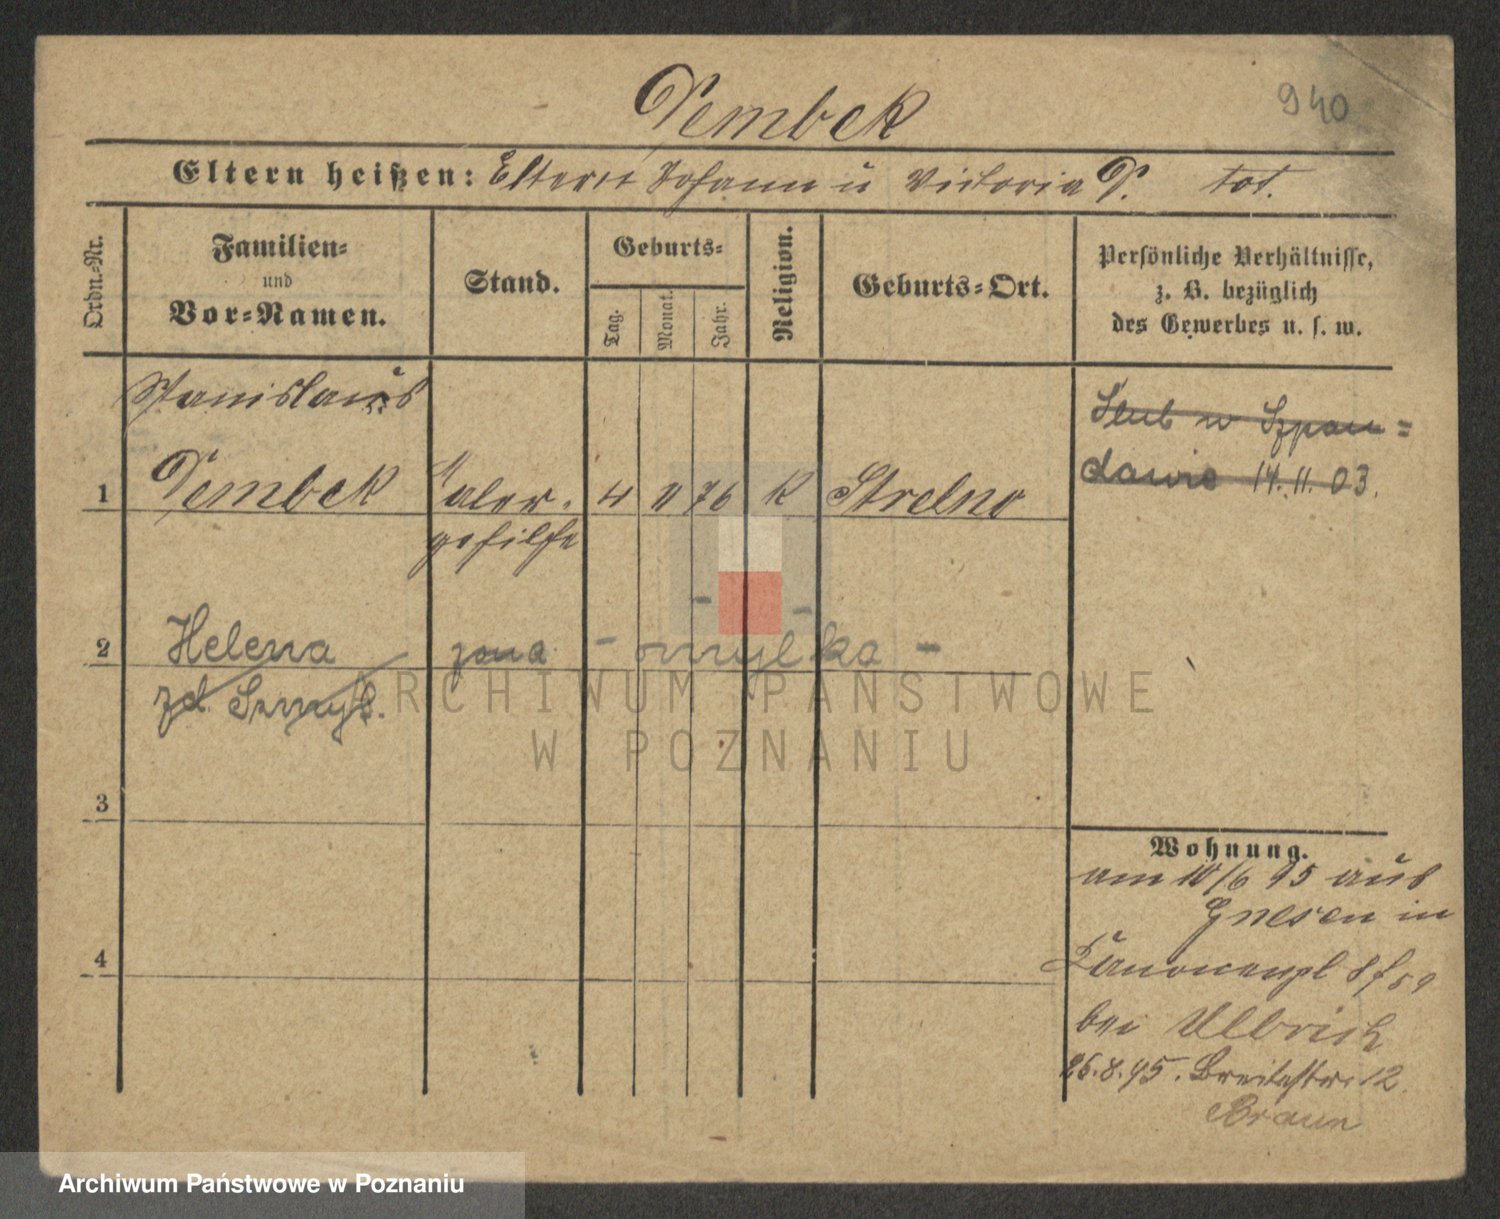 Pembek
940
Eltern heißen: Eltern Johann u Victoria P. tot.
Ordn.-Nr.
Familien-
und
Vor-Namen.
Stand.
Geburts-
Tag.
Monat.
Jahr.
Religion.
Geburts-Ort.
Persönliche Verhältnisse,
z. B. bezüglich
des Gewerbes u. s. w.
Stanislaus
1 Pembek Maler- 4 11 76 K Strelno
gehilfe
Ślub w Szpan-
dawie 14.11.03.
2 Helena żona - omyłka -
zd. Szmyt.
3
4
Wohnung.
am 10/6 95 aus
Gnesen in
Kanonenpl 8
bei Ullrich
26.8.95. Breitestr. 12
Braun
ARCHIWUM PAŃSTWOWE
W POZNANIU
Archiwum Państwowe w Poznaniu